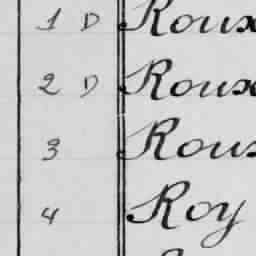 1 D Roux
2 D Roux
3 Roux
4 Roy